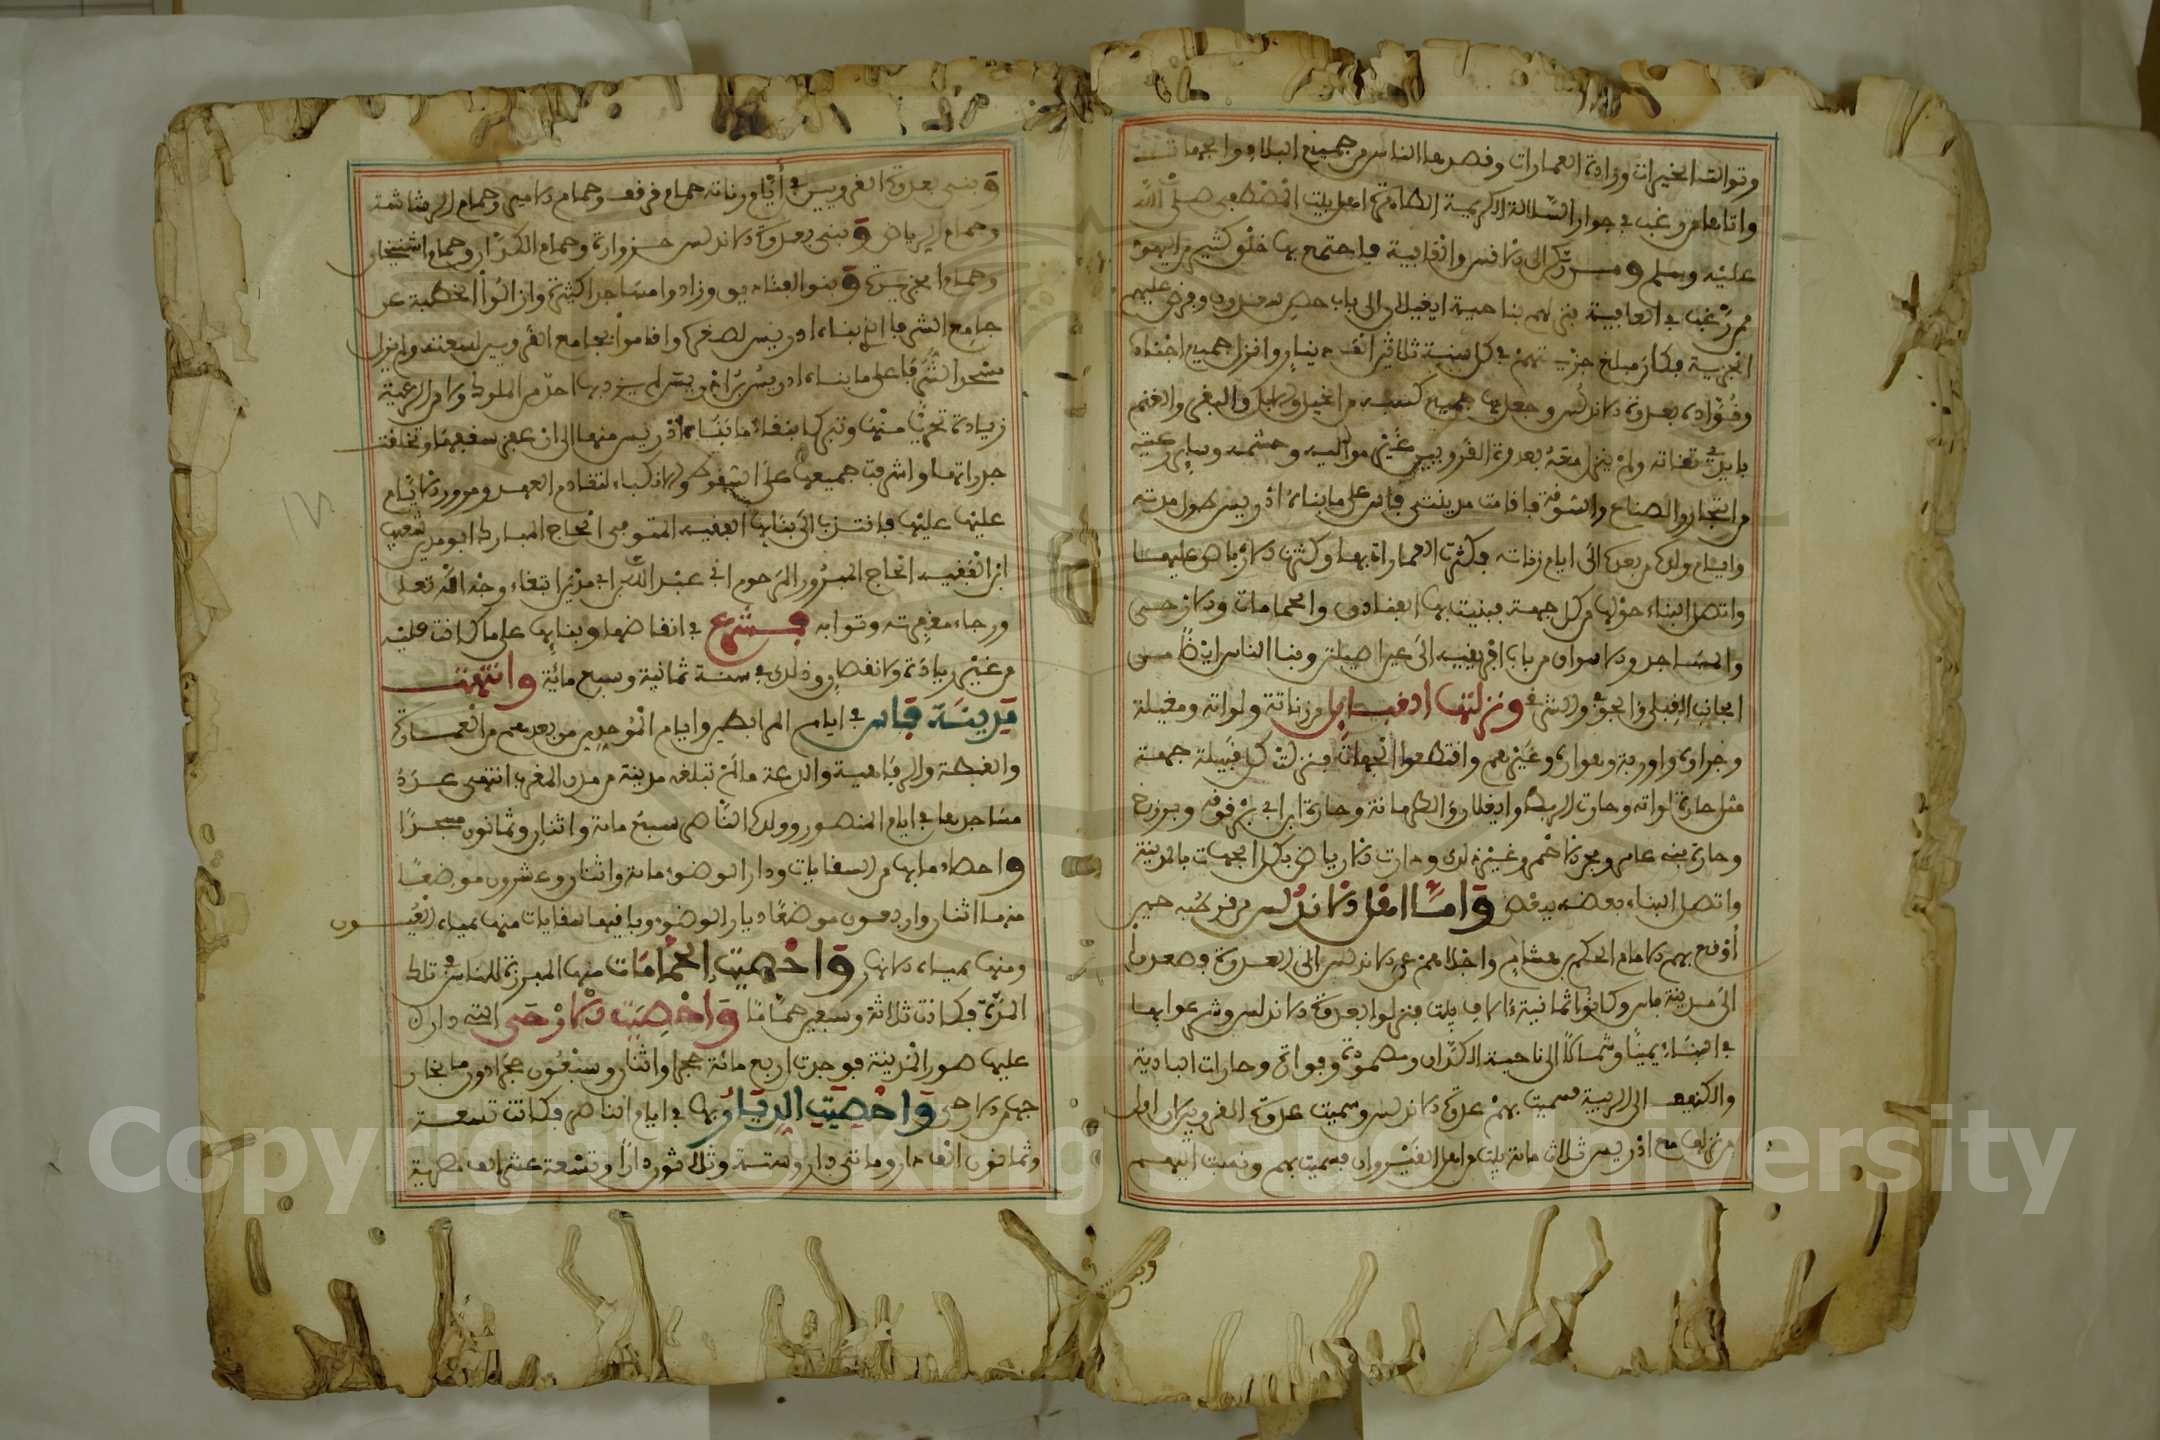 وتوالت الخيرات وزادة العمارات وقصدها الناس من جميع البلاد والجهات
واتاها من رغب في جوار السلالة الكريمة الطاهرة اهل بيت المصطفى صلى الله
عليه وسلم الى فاس واتقابية فاجتمع بها خلق كثير من اليهود
ممن رغب في العافية فنزلهم بناحية ايغيلان الى باب حصن سعدون وفرض عليهم
الجزية فكان مبلغ جزيتهم في كل سنة ثلاثين الف دينار وانزل جميع اجناده
وقواده بعدوة الاندلس وجعل بها جميع كسبه من الخيل والابل والبقر والغنم
بايدي ثقاته ولم ينزل معه بعدوة القرويين غير مواليه وحشمه وساير رعيته
من التجار والصناع والسوقة فاقامت مدينتي فاس على ما بناه ادريس طول مدته
وايام ولده من بعده الى ايام زناتة فكثرت العمارة بها وكثرت الارباض عليها
واتصل البناء حولها من كل جهة فبنيت بها الفنادق والحمامات والارحى
والمساجد والاسواق من باب افريقية الى عين اصليتن وبنا الناس ايضا من
الجانب القبلي والجوفي والشرقي ونزلتها القبايل من زناتة ولواتة ومغيلة
وجراوة واوربة وهوارة وغيرهم واقتطعوا الجهات فنزلت كل قبيلة جهة
مثل حارة لواتة وحارت الربط وايغلان والطرمانة وحارة ابن ابي برقوقة وبرزخ
وحارة بني عامر وغير ذلك وحارت الارياض بكل الجهات بالمدينة
واتصل البناء بعضه ببعض واما اهل الاندلس من قرطبة حين
اوقع بهم الامام الحكم بن هشام واجلاهم عن الاندلس الى العدوة فصعدوا
الى مدينة فاس وكانوا ثمانية الاف بيت فنزلوا بعدوة الاندلس وشرعوا بها
في البناء يمينا وشمالا الى ناحية الكدان ومصمودة وفوارة وحارات البادية
والكنيف الى الرميلة فسميت بهم عدوة الاندلس وسميت عدوة القرويين لان اول
من نزلها مع ادريس ثلاث مائة بيت من اهل القيروان فسميت بهم ونسبت اليهم
وبنى
وبنى بعدوة القرويين في ايام زناتة حمام فرقف وحمام الامير وحمام الرشاشة
وحمام الرياض وبنى بعدوة الاندلس حمام جزوارة وحمام الكدان وحمام الشيخان
وحمام جزيرة وبنوا الفناديق وزادوا مساجدا كثيرة وازالوا الخطبة عن
جامع الشرفا الذي بناه ادريس لصغره واقاموها بجامع القرويين لسعته ولم يزل
مسجد الشرفا على ما بناه ادريس بن ادريس لم يزد فيه احد من الملوك ولا من الرعية
زيادة تحريا منهم وتبركا بقاء ما بناه ادريس منها الى ان عفر سقفها وتخلقت
جدراتها واشرفت جميعها على السقوط والاندكاك لتقادم العهد ومرور الايام
عليها فانتدب الى بنايها الفقيه المتوفى الحاج المبارك ابو مدين شعيب
ابن الفقيه الحاج المبرور المرحوم ابي عبد الله بن ابي مدين ابتغاء وجه الله تعلى
ورجاء مغفرته وثوابه فشرع في انقاضها وبنايها على ما كانت عليه
من غير زيادة ولا نقص وذلك في سنة ثمانية وسبع مائة وانتهت
مدينة فاس في ايام المرابطين وايام الموحدين من بعدهم من العمارة
والغبطة والرفاهية والدعة ما لم تبلغه مدينة من مدن المغرب انتهى عدد
مساجدها في ايام المنصور وولده الناصر سبع مائة واثنان وثمانون مسجدا
واحصاء ما بها من السقايات ودار الوضوء مائة واثنان وعشرون موضعا
منها اثنان واربعون موضعا ديار الوضوء وباقيها سقايات منها بمياه العيون
ومنها بمياه الانهر واحصيت الحمامات منها المبرزة للناس في تلك
المدة فكانت ثلاثة وسبعين حماما واحصيت الارحى التي دارت
عليها صور المدينة فوجدت اربع مائة حجر واثنان وسبعون حجرا دون ما بخارجها
من الارحى واحصيت الديار بها في ايام الناصر فكانت تسعة
وثمانون الف دار ومائتي دار وستة وثلاثون دارا وتسعة عشر الف مصرية
Copyright © King Saud University